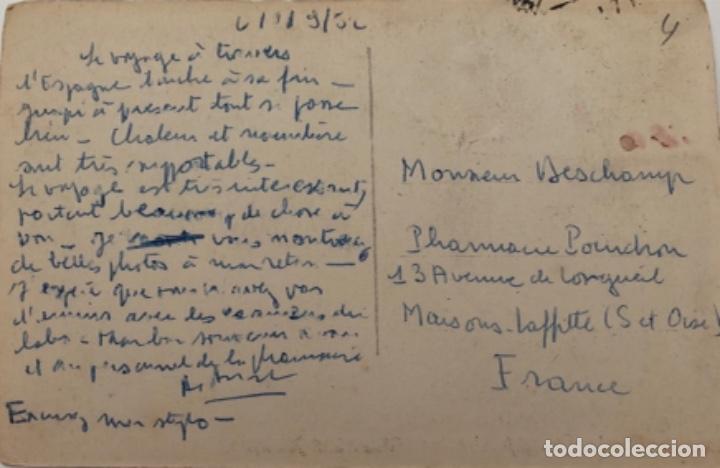 9/52
Le voyage à travers
l'Espagne touche à sa fin —
jusqu'à présent tout se passe
bien — Chaleur et nourriture
sont très supportables —
Le voyage est très intéressant,
partout beaucoup de chose à
voir — Je vous montrerai
de belles photos à mon retour —
J'espère que vous n'avez pas
d'ennuis avec les
labo — bon souvenir à vous
et au personnel de la pharmacie
Excusez mon stylo —
4
Monsieur Deschamps
Pharmacie Poindron
13 Avenue de Longueil
Maisons-Laffitte (S et Oise)
France
todocoleccion
todocoleccion.net